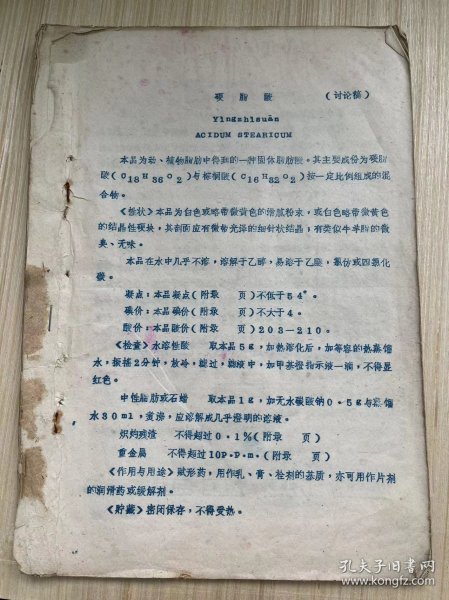 硬脂酸 （讨论稿）
Yingzhisuān
ACIDUM STEARICUM
本品为动、植物脂肪中得到的一种固体脂肪酸。其主要成份为硬脂
酸（C18H36O2）与棕榈酸（C16H32O2）按一定比例组成的混
合物。
《性状》本品为白色或略带微黄色的滑腻粉末，或白色略带微黄色
的结晶性硬块，其剖面应有微带光泽的细针状结晶；有类似牛羊脂的微
臭、无味。
本品在水中几乎不溶，溶解于乙醇，易溶于乙醚，氯仿或四氯化
碳。
凝点：本品凝点（附录 页）不低于54°。
碘价：本品碘价（附录 页）不大于4。
酸价：本品酸价（附录 页）203—210。
《检查》水溶性酸 取本品5g，加热溶化后，加等容的热蒸馏
水，振摇2分钟，放冷，滤过，滤液中，加甲基橙指示液一滴，不得显
红色。
中性脂肪或石蜡 取本品1g，加无水碳酸钠0.5g与蒸馏
水30ml，煮沸，应溶解成几乎澄明的溶液。
炽灼残渣 不得超过0.1%（附录 页）
重金属 不得超过10P.P.m.（附录 页）
《作用与用途》赋形药，用作乳、膏、栓剂的基质，亦可用作片剂
的润滑药或缓解剂。
《贮藏》密闭保存，不得受热。
孔夫子旧书网
www.kongfz.com